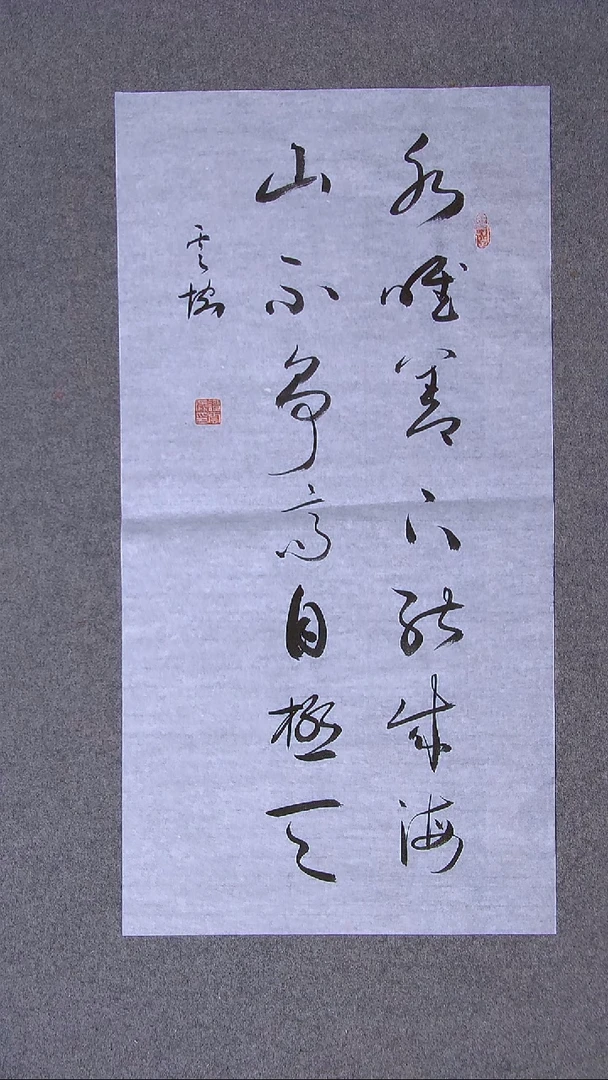 水唯善下能成海
山不争高自极天
云